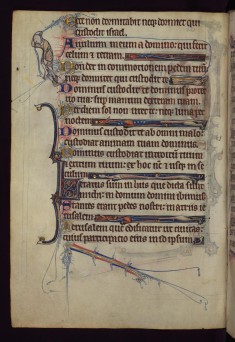 Ecce non dormitabit neque dormiet qui
custodit israel.
Auxilium meum a domino: qui fecit
celum et terram.
Non det in commotionem pedem tuum
neque dormitet qui custodit te
Dominus custodit te dominus protec
tio tua: super manum dexteram tuam.
Per diem sol non uret te: neque luna per
noctem
Dominus custodit te ab omni malo:
custodiat animam tuam dominus.
Dominus custodiat introitum tuum
et exitum tuum: ex hoc nunc et usque in se
culum
Letatus sum in hiis que dicta sunt
michi: in domum domini ibimus
Stantes erant pedes nostri: in atriis ie
rusalem
Ierusalem que edificatur ut civitas:
cuius participatio eius in id ipsum